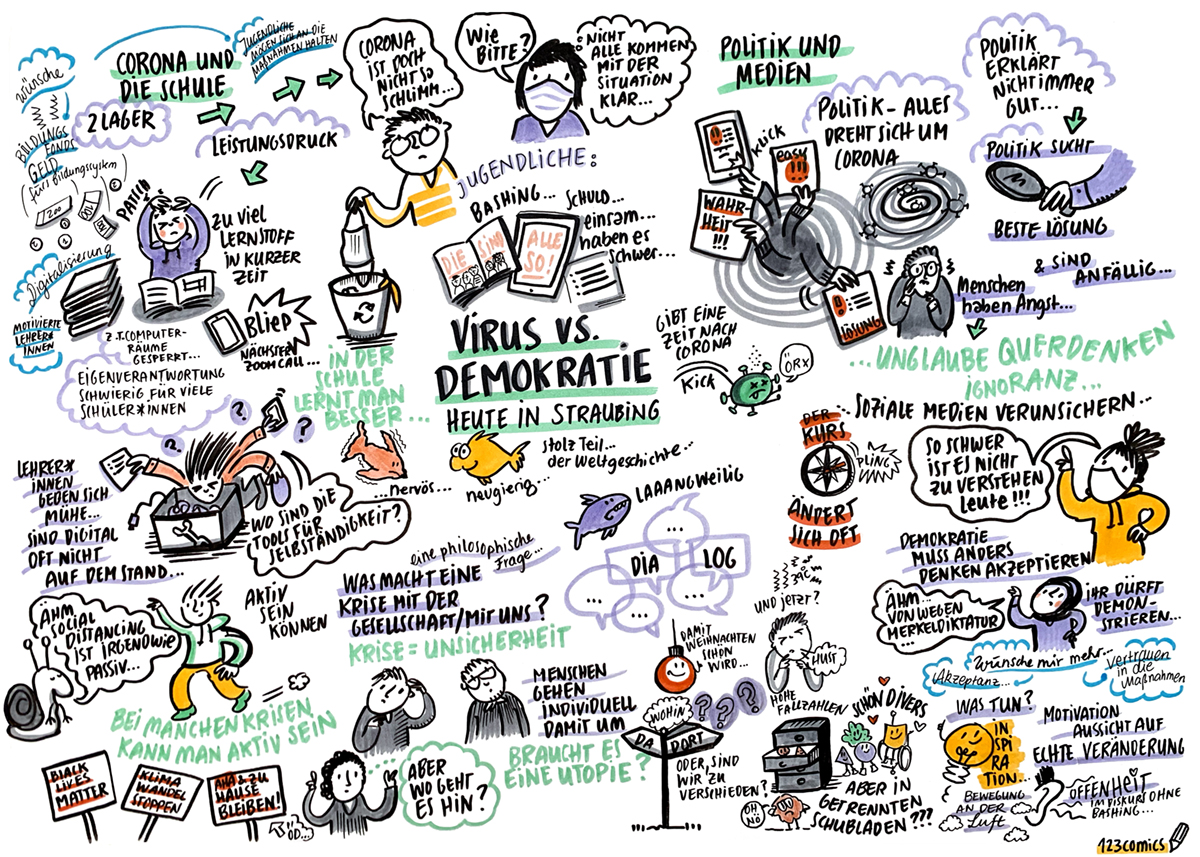 Wünsche
BILDUNGS
FONDS
GELD
(fürs Bildungssystem)
200
100
Digitalisierung
MOTIVIERTE
LEHRER*
INNEN
CORONA UND
DIE SCHULE
JUGENDLICHE
MÖGEN SICH AN DIE
MAẞNAHMEN HALTEN
2 LAGER
LEISTUNGSDRUCK
PATSCH
ZU VIEL
LERNSTOFF
IN KURZER
ZEIT
BLIEP
NÄCHSTER
ZOOM CALL...
Z.T. COMPUTER-
RÄUME
GESPERRT...
EIGENVERANTWORTUNG
SCHWIERIG FÜR VIELE
SCHÜLER*INNEN
CORONA
IST DOCH
NICHT SO
SCHLIMM...
WIE
BITTE?
NICHT
ALLE KOMMEN
MIT DER
SITUATION
KLAR...
JUGENDLICHE:
BASHING...
SCHULD...
einsam...
haben es
schwer...
DIE SIND
ALLE
SO!
IN DER
SCHULE
LERNT MAN
BESSER...
VIRUS VS.
DEMOKRATIE
HEUTE IN STRAUBING
GIBT EINE
ZEIT NACH
CORONA
KICK
ÖRX
POLITIK UND
MEDIEN
KLICK
easy
WAHR-
HEIT!!!
LÖSUNG
POLITIK - ALLES
DREHT SICH UM
CORONA
POLITIK
ERKLÄRT
NICHT IMMER
GUT...
POLITIK SUCHT
BESTE LÖSUNG
Menschen
haben Angst...
& SIND
ANFÄLLIG...
...UNGLAUBE QUERDENKEN
IGNORANZ...
SOZIALE MEDIEN VERUNSICHERN...
SO SCHWER
IST ES NICHT
ZU VERSTEHEN
LEUTE!!!
DER
KURS
PLING
ÄNDERT
SICH OFT
LEHRER*
INNEN
GEBEN SICH
MÜHE...
SIND DIGITAL
OFT NICHT
AUF DEM STAND...
WO SIND DIE
TOOLS FÜR
SELBSTÄNDIGKEIT?
...nervös...
neugierig...
stolz Teil...
der Weltgeschichte...
LAAANGWEILIG
eine philosophische
Frage...
WAS MACHT EINE
KRISE MIT DER
GESELLSCHAFT/MIT UNS?
KRISE = UNSICHERHEIT
...
DIA
LOG
...
...
...
DEMOKRATIE
MUSS ANDERS
DENKEN AKZEPTIEREN
ÄHM...
VON WEGEN
MERKELDIKTATUR
IHR DÜRFT
DEMON-
STRIEREN...
ÄHM
SOCIAL
DISTANCING
IST IRGENDWIE
PASSIV...
AKTIV
SEIN
KÖNNEN
BEI MANCHEN KRISEN
KANN MAN AKTIV SEIN
BLACK
LIVES
MATTER
KLIMA
WANDEL
STOPPEN
AHA & ZU
HAUSE
BLEIBEN!
ÖD...
MENSCHEN
GEHEN
INDIVIDUELL
DAMIT UM
ABER
WO GEHT
ES HIN?
BRAUCHT ES
EINE UTOPIE?
DAMIT
WEIHNACHTEN
SCHÖN
WIRD...
WOHIN
???
DA
DORT
ODER, SIND
WIR ZU
VERSCHIEDEN?
UND JETZT?
HUST
HOHE
FALLZAHLEN
SCHÖN DIVERS
OH
NO
ABER IN
GETRENNTEN
SCHUBLADEN???
Wünsche mir mehr...
Akzeptanz...
Vertrauen
in die
Maßnahmen
WAS TUN?
IN
SPI
RA
TION...
BEWEGUNG
AN DER
Luft
MOTIVATION
AUSSICHT AUF
ECHTE VERÄNDERUNG
OFFENHEIT
IM DISKURS OHNE
BASHING...
123comics